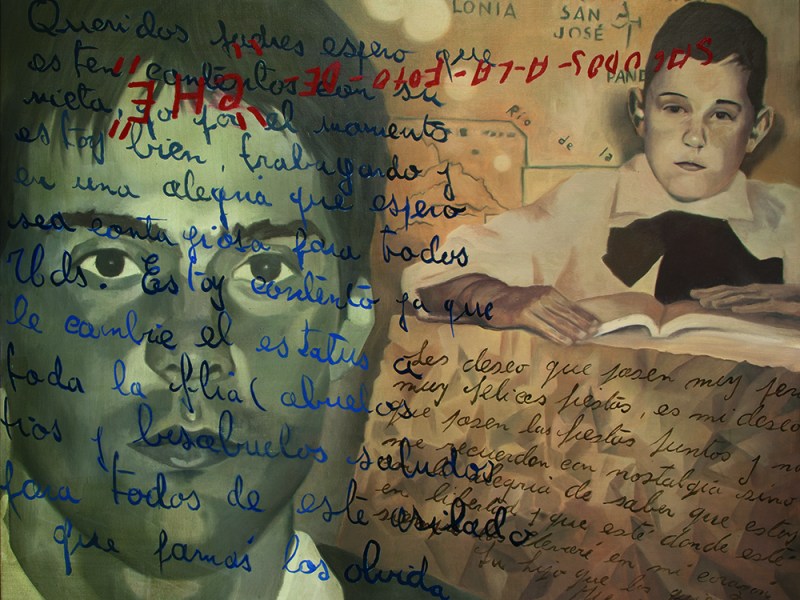 LONIA
SAN
JOSÉ
PAND
Rio de la
SALUDOS-A-LA-FOTO-DE-
"CHE"
Queridos padres espero que
esten contentos con su
nieta, yo por el momento
estoy bien, trabajando y
en una alegria que espero
sea contagiosa para todos
Uds. Estoy contento ya que
le cambie el estatus a
toda la flia ( abuelos
tios y bisabuelos saludos
para todos de este exilado
que jamás los olvida
Les deseo que pasen muy pero
muy felices fiestas, es mi deseo
que pasen las fiestas juntos y no
me recuerden con nostalgia sino
alegria de saber que estoy
en libertad y que esté donde esté
llevaré en mi corazón
Su hijo que los